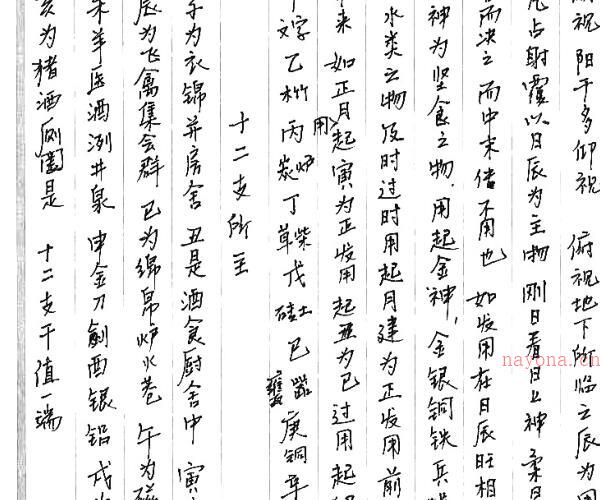 俯视 阳干多仰视 俯视地下所临之辰为用
凡占射覆以日辰为主物 刚日看日上神 柔日
而决之 而中末传不用也 如发用在日辰旺相
神为坚食之物.用起金神,金银铜铁兵
水类之物 及时过时用起月建为正发用 前
来 如正月起寅为正发用 起丑为已过用起卯
用
文字 乙材丙炭炉丁草柴戊硅土已器庚铜辛
瓷
十二支所主
子为衣锦并房舍 丑是酒食厨舍中 寅
辰为飞禽集会群 巳为绵帛炉火巷 午为
未羊医酒洌井泉 申金刀劍酉银铝 戌为
亥为猪酒厕圂是 十二支干值一端
nayona.cn